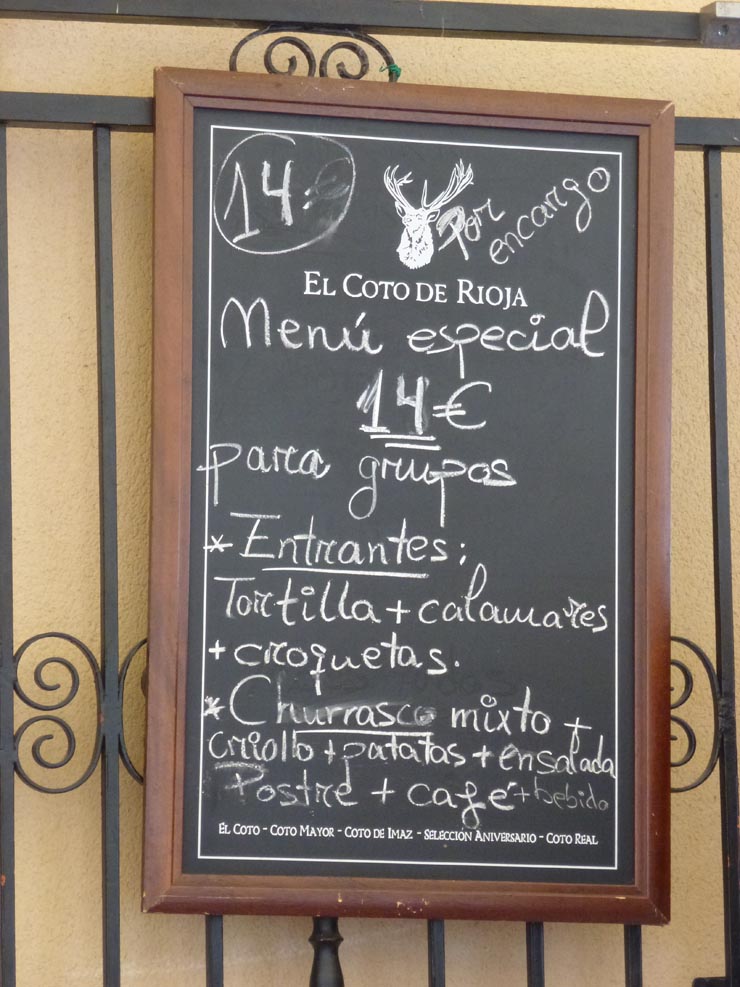 14€
Por encargo
EL COTO DE RIOJA
Menú especial
14€
para grupos
* Entrantes:
Tortilla + calamares
+ croquetas.
* Churrasco mixto +
criollo + patatas + ensalada
Postre + café + bebida
EL COTO - COTO MAYOR - COTO DE IMAZ - SELECCIÓN ANIVERSARIO - COTO REAL